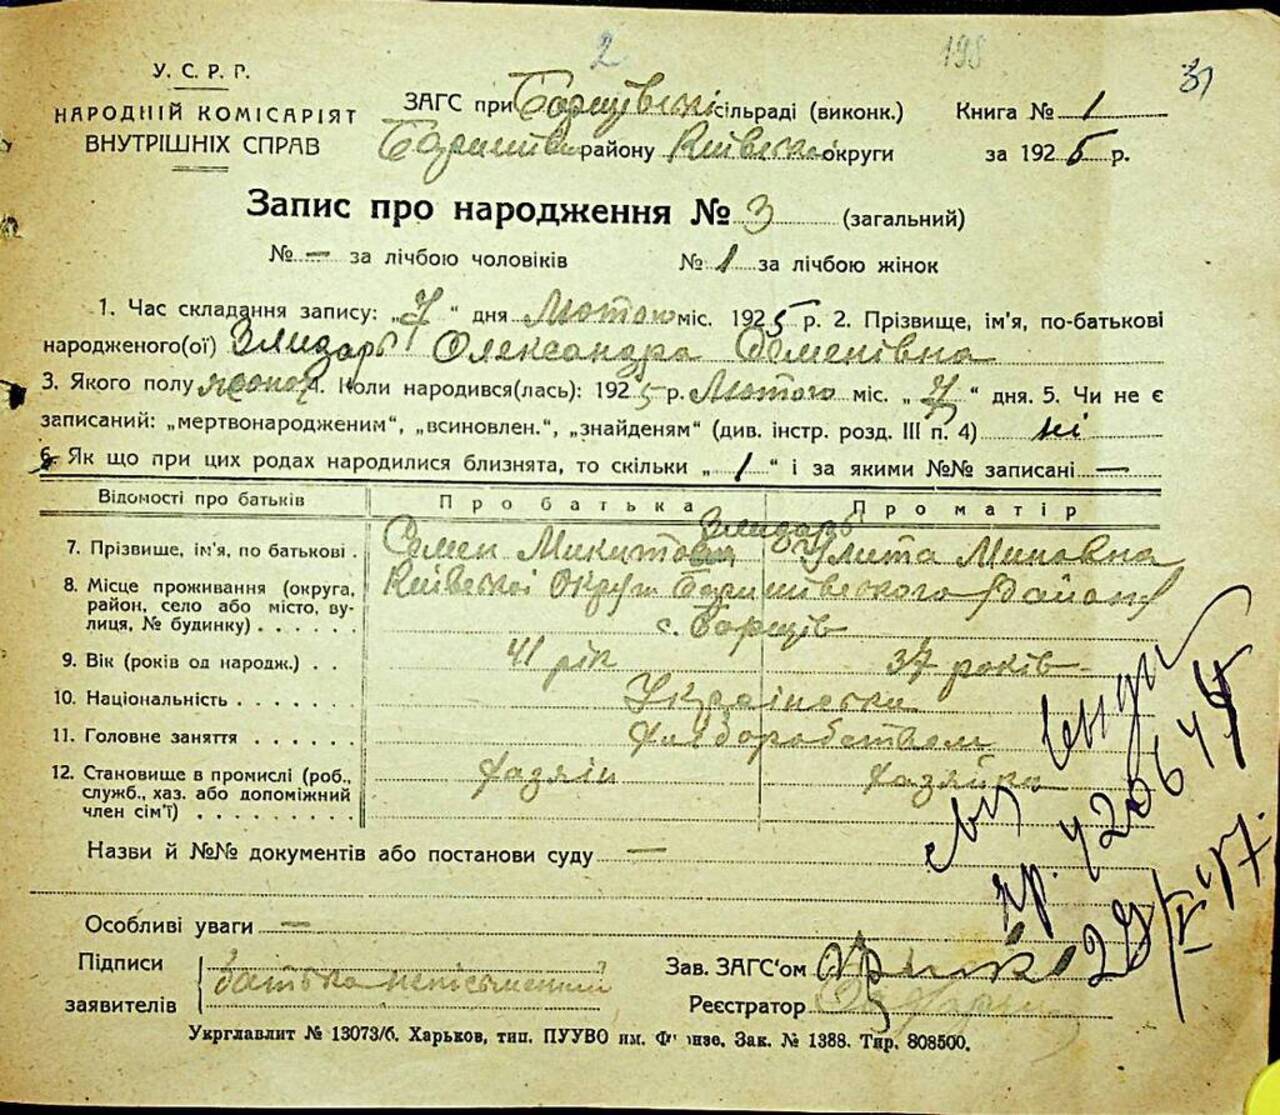 2 198 31
У. С. Р. Р.
НАРОДНІЙ КОМІСАРІЯТ
ВНУТРІШНІХ СПРАВ
ЗАГС при Борщівські сільраді (виконк.) Книга № 1
Баришівськ району Київська округи за 1925 р.
Запис про народження № 3 (загальний)
№ — за лічбою чоловіків № 1 за лічбою жінок
1. Час складання запису: „7“ дня Лютого міс. 1925 р. 2. Прізвище, ім'я, по-батькові
народженого(ої) Злидарь Олександра Семенівна
3. Якого полу жоноч 4. Коли народився(лась): 1925 р. Лютого міс. „7“ дня. 5. Чи не є
записаний: „мертвонародженим“, „всиновлен.“, „знайденям“ (див. інстр. розд. III п. 4) ні
6. Як що при цих родах народилися близнята, то скільки „1“ і за якими №№ записані —
Відомості про батьків Про батька Про матір
Злидарь
7. Прізвище, ім'я, по батькові . Семен Микитови Улита Миновна
8. Місце проживання (округа, район, село або місто, вулиця, № будинку) . . . . . . Київської Округи Баришівського Району
с. Борщів
9. Вік (років од народж.) . . 41 рік 37 років
10. Національність . . . . . . . Українська
11. Головне заняття . . . . . . Хліборобством
12. Становище в промислі (роб., служб., хаз. або допоміжний член сім'ї) . . . . . . . . . хазяїн хазяйка
Назви й №№ документів або постанови суду —
Особливі уваги —
Підписи
заявителів батько неписьменний
Зав. ЗАГС'ом
Реєстратор
29/IV 57.
Укрглавлит № 13073/б. Харьков, тип. ПУУВО им. Фрунзе. Зак. № 1388. Тир. 808500.